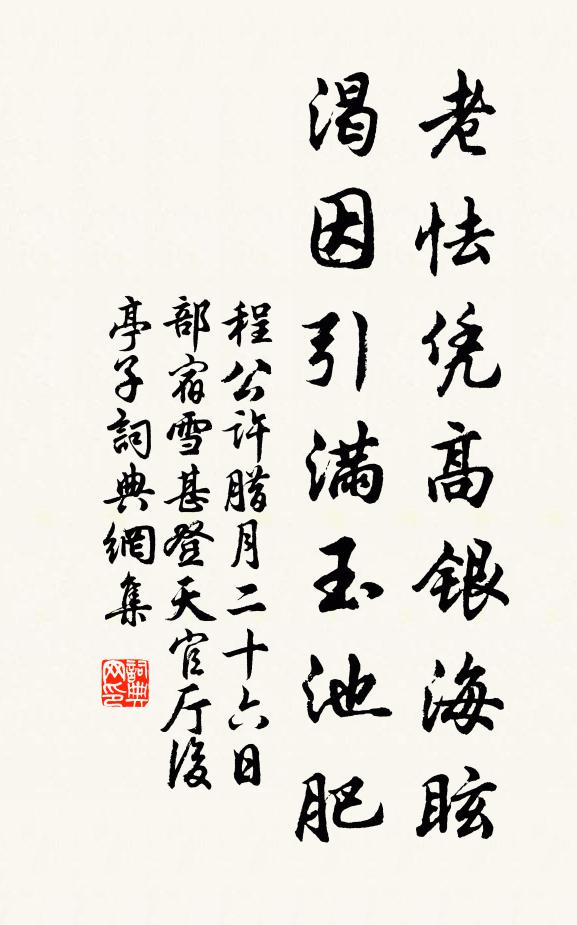 老怯凭高銀海眩
渴因引滿玉池肥
程公许腊月二十六日
部宿雪甚登天官厅後
亭子詞典網集
詞典网印